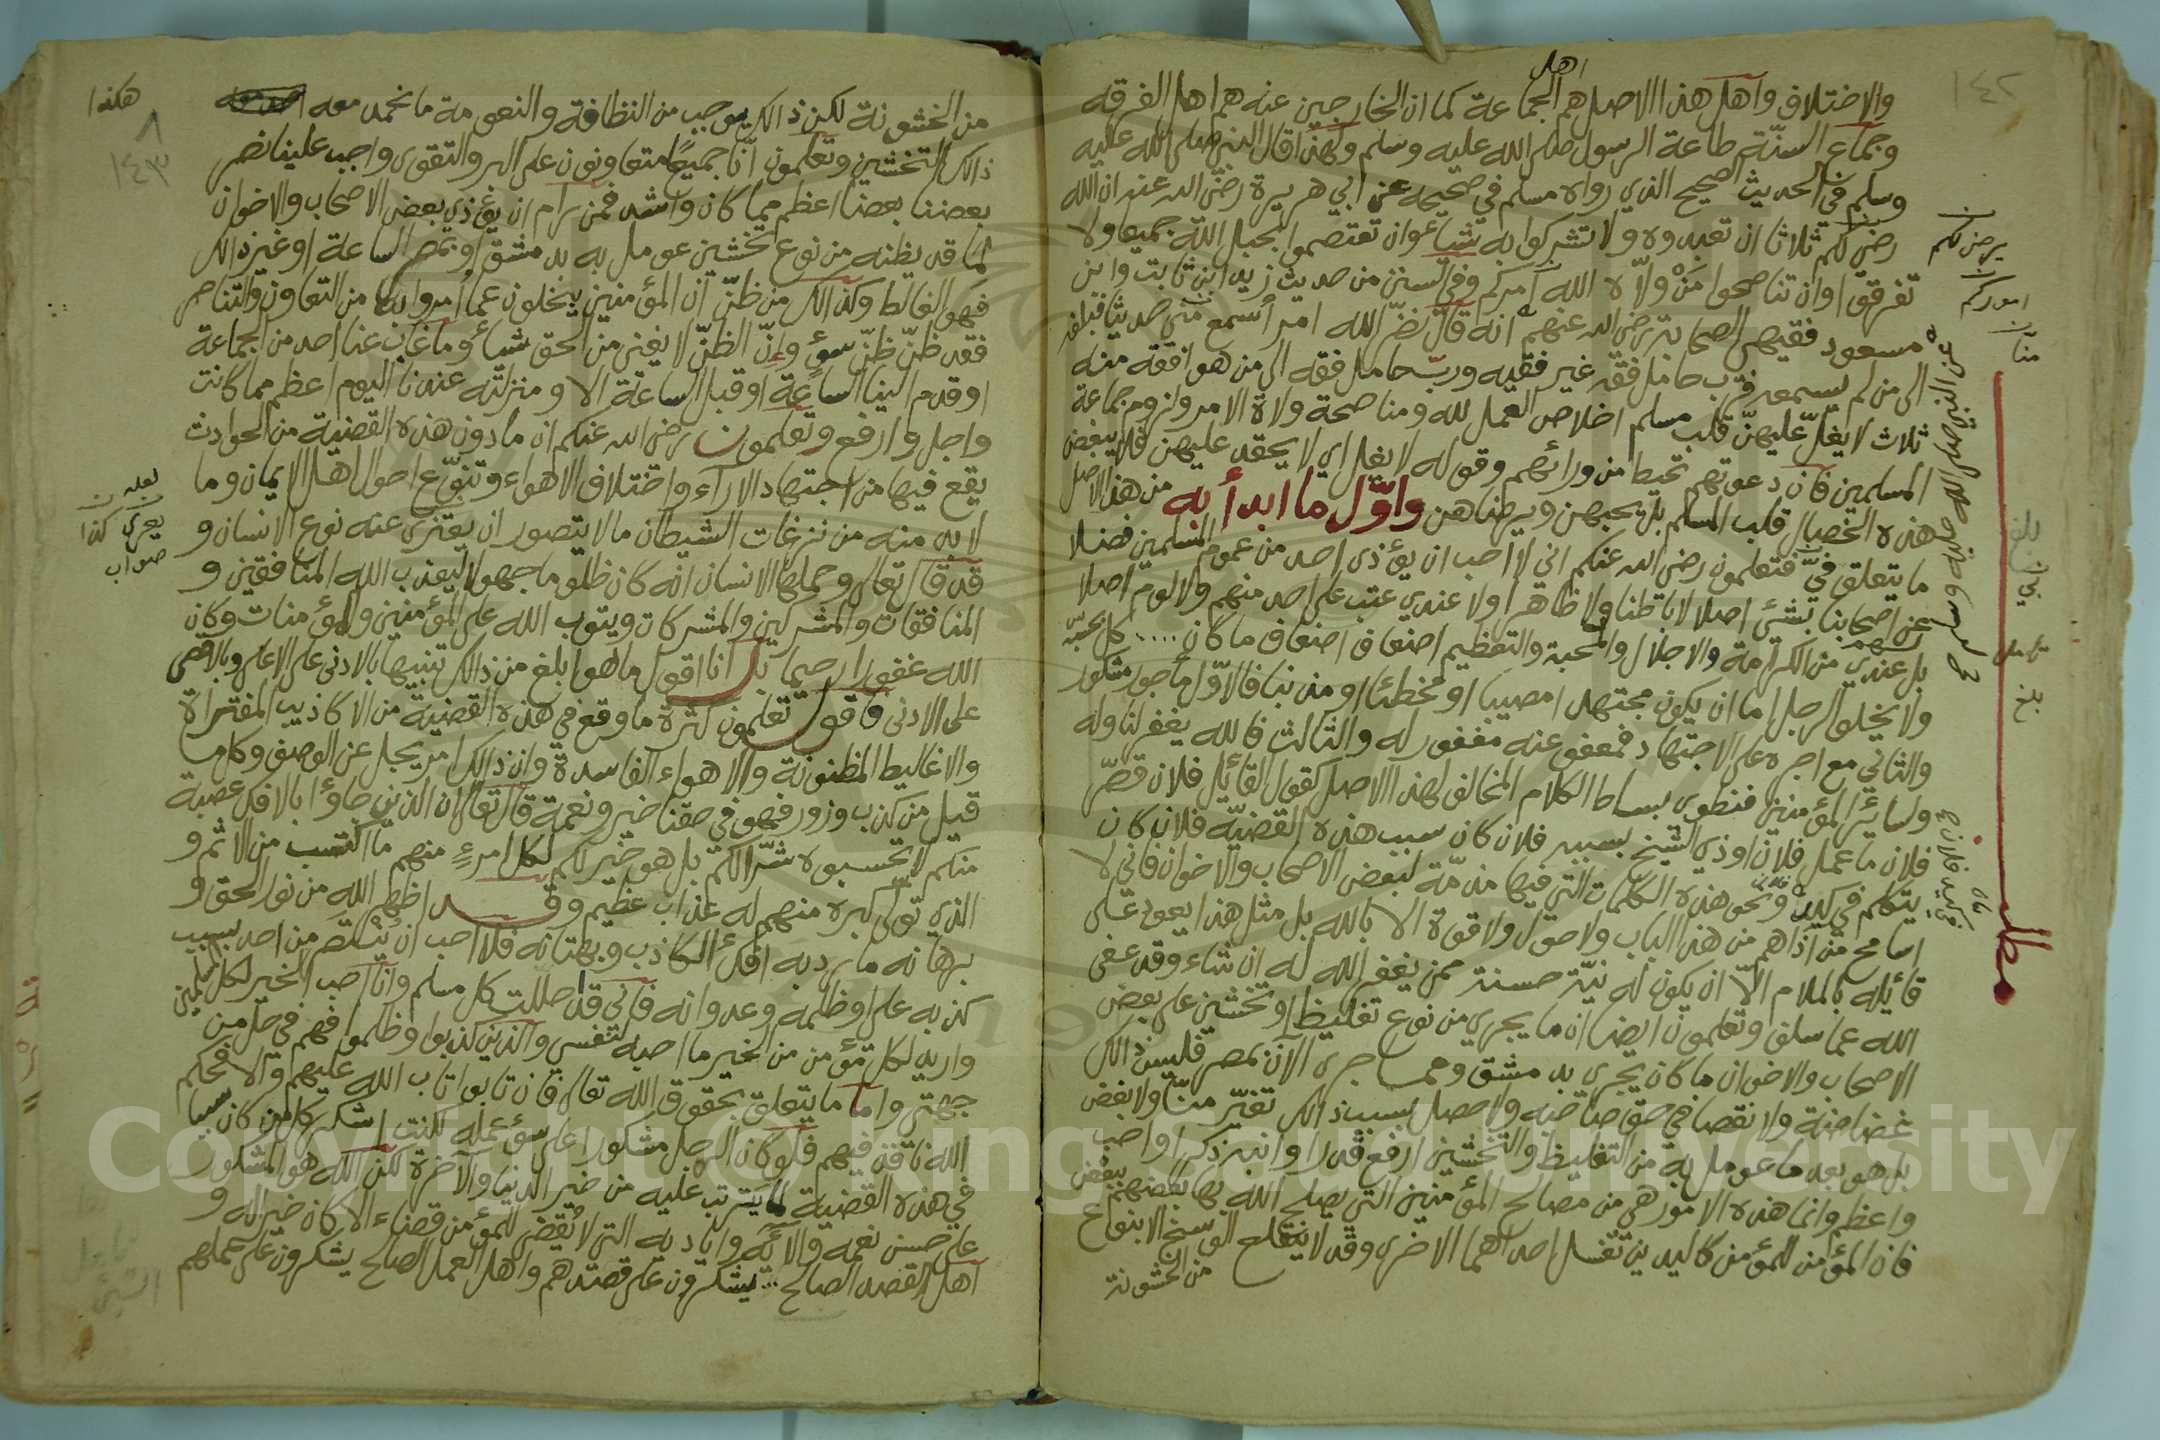 ١٤٢
اهل
والاختلاف واهل هذا الاصل هم الجماعة كما ان الخارجين عنه هم اهل الفرقه
وجماع السنّة طاعة الرسول صلى الله عليه وسلم ولهذا قال النبي صلى الله عليه
وسلم في الحديث الصحيح الذي رواه مسلم في صحيحه عن ابي هريرة رضي الله عنه ان الله
رضي لكم ثلاثا ان تعبدوه ولا تشركوا به شيا وان تعتصموا بحبل الله جميعا ولا
تفرقوا وان تناصحوا مَنْ ولّاه الله امركم وفي السنن من حديث زيد ابن ثابت وابن
مسعود فقيهي الصحابة رضي الله عنهم انه قال نضّر الله امرأ سمع منّي حديثا فبلغه
الى من لم يسمعه فرب حامل فقه غير فقيه وربّ حامل فقه الى من هو افقه منه
ثلاث لا يغلّ عليهنّ قلب مسلم اخلاص العمل لله ومناصحة ولاة الامر ولزوم جماعة
المسلمين فان دعوتهم تحيط من ورائهم وقوله لا يغل اي لا يحقد عليهن فلا يبغض
هذه الخصال قلب المسلم بل يحبهن ويرضاهن واوّل ما ابدأ به من هذا الاصل
ما يتعلق فيَّ فتعلمون رضي الله عنكم اني لا احب ان يؤذى احد من عموم المسلمين فضلا
عن اصحابنا بشئ اصلا لا باطنا ولا ظاهرا ولا عندي عتب على احد منهم ولا لوم اصلا
بل عندي لهم من الكرامة والاجلال والمحبة والتعظيم اضعاف اضعاف ما كان .... كل بحسبه
ولا يخلو الرجل اما ان يكون مجتهدا مصيبا او مخطئا او مذنبا فالاوّل مأجور مشكور
والثاني مع اجره على الاجتهاد فمعفو عنه مغفور له والثالث فالله يغفر لنا وله
ولسائر المؤمنين فنطوي بساط الكلام المخالف لهذا الاصل كقول القائل فلان قصّر
فلان ما عمل فلان اوذي الشيخ بسببه فلان كان سبب هذه القضيّه فلان كان
يتكلم في كيد فلان ونحو هذه الكلمات التي فيها مذمّة لبعض الاصحاب والاخوان فاني لا
اسامح من آذاهم من هذا الباب ولا حول ولا قوة الا بالله بل مثل هذا يعود على
قائله بالملام الّا ان يكون له نيّة حسنة ممن يغفر الله له ان شاء وقد عفى
الله عما سلف وتعلمون ايضا ان ما يجري من نوع تغليظ او تخشين على بعض
الاصحاب والاخوان ما كان يجري بدمشق ومما جرى الآن بمصر فليس ذالك
غضاضة ولا نقصا في حق صاحبه ولا حصل بسبب ذالك تغيّر منّا ولا بغض
بل هو بعد ما عومل به من التغليظ والتخشين ارفع قدرا وانبه ذكرا واحب
واعظم وانما هذه الامور هي من مصالح المؤمنين التي يصلح الله بها بعضهم ببعض
فان المؤمن للمؤمن كاليدين تغسل احداهما الاخرى وقد لا ينقلع الوسخ الا بنوع
من الخشونة
يرضى لكم
اموركم
منّا
مطلب
١٤٣
هكذا
من الخشونة لكن ذالك يوجب من النظافة والنعومة ما نحمد معه
ذالك التخشين وتعلمون انّا جميعًا متعاونون على البر والتقوى واجب علينا نصر
بعضنا بعضا اعظم مما كان واشد فمن رام ان يؤذي بعض الاصحاب والاخوان
لما قد يظنه من نوع تخشين عومل به بدمشق او بمصر الساعة او غير ذالك
فهو الغالط وكذالك من ظنّ ان المؤمنين يبخلون عما أمروا به من التعاون والتناصر
فقد ظنّ ظنّ سوءٍ وإنّ الظنّ لا يغني من الحق شيأ وما غاب عنا احد من الجماعة
او قدم الينا الساعة او قبل الساعة الا ومنزلته عندنا اليوم اعظم مما كانت
واجل وارفع وتعلمون رضي الله عنكم ان ما دون هذه القضية من الحوادث
يقع فيها من اجتهاد الاراء واختلاف الاهواء وتنوّع احوال اهل الايمان وما
لا بد منه من نزغات الشيطان ما لا يتصور ان يعترى عنه نوع الانسان و
قد قال تعالى وحملها الانسان انه كان ظلوما جهولا ليعذب الله المنافقين و
المنافقات والمشركين والمشركات ويتوب الله على المؤمنين والمؤمنات وكان
الله غفورا رحيما بل انا اقول ما هو ابلغ من ذالك تنبيها بالادنى على الاعلى وبالاقصى
على الادنى فاقول تعلمون كثرة ما وقع في هذه القضيّة من الاكاذيب المفتراة
والاغاليط المظنونة والاهواء الفاسدة وان ذالك امر يجل عن الوصف وكلما
قيل من كذب وزور فهو في حقنا خير ونعمة قال تعالى ان الذين جاؤا بالافك عصبة
منكم لا تحسبوه شرّا لكم بل هو خير لكم لكل امرءٍ منهم ما اكتسب من الاثم و
الذي تولّى كبره منهم له عذاب عظيم وقد اظهر الله من نور الحق و
برهانه ما يرد به افك الكاذب وبهتانه فلا احب ان يُنتصر من احد بسبب
كذبه علي او ظلمه وعدوانه فاني قد احللت كل مسلم وانا احب الخير لكل المسلمين
واريد لكل مؤمن من الخير ما احبه لنفسي والذين كذبوا وظلموا فهم في حل من
جهتي واما ما يتعلق بحقوق الله تعالى فان تابوا تاب الله عليهم والا فحكم
الله نافذ فيهم فلو كان الرجل مشكورا على سوء عمله لكنت اشكر كل من كان سببا
في هذه القضية لما يترتب عليه من خير الدنيا والآخرة لكن الله هو المشكور
على حسن نعمه والائه واياديه التي لا يُقضى للمؤمن قضاء الا كان خيرا له و
اهل القصد الصالح .. يشكرون على قصدهم واهل العمل الصالح يشكرون على عملهم
لعله
يعرى كذا
صواب
Copyright © King Saud University